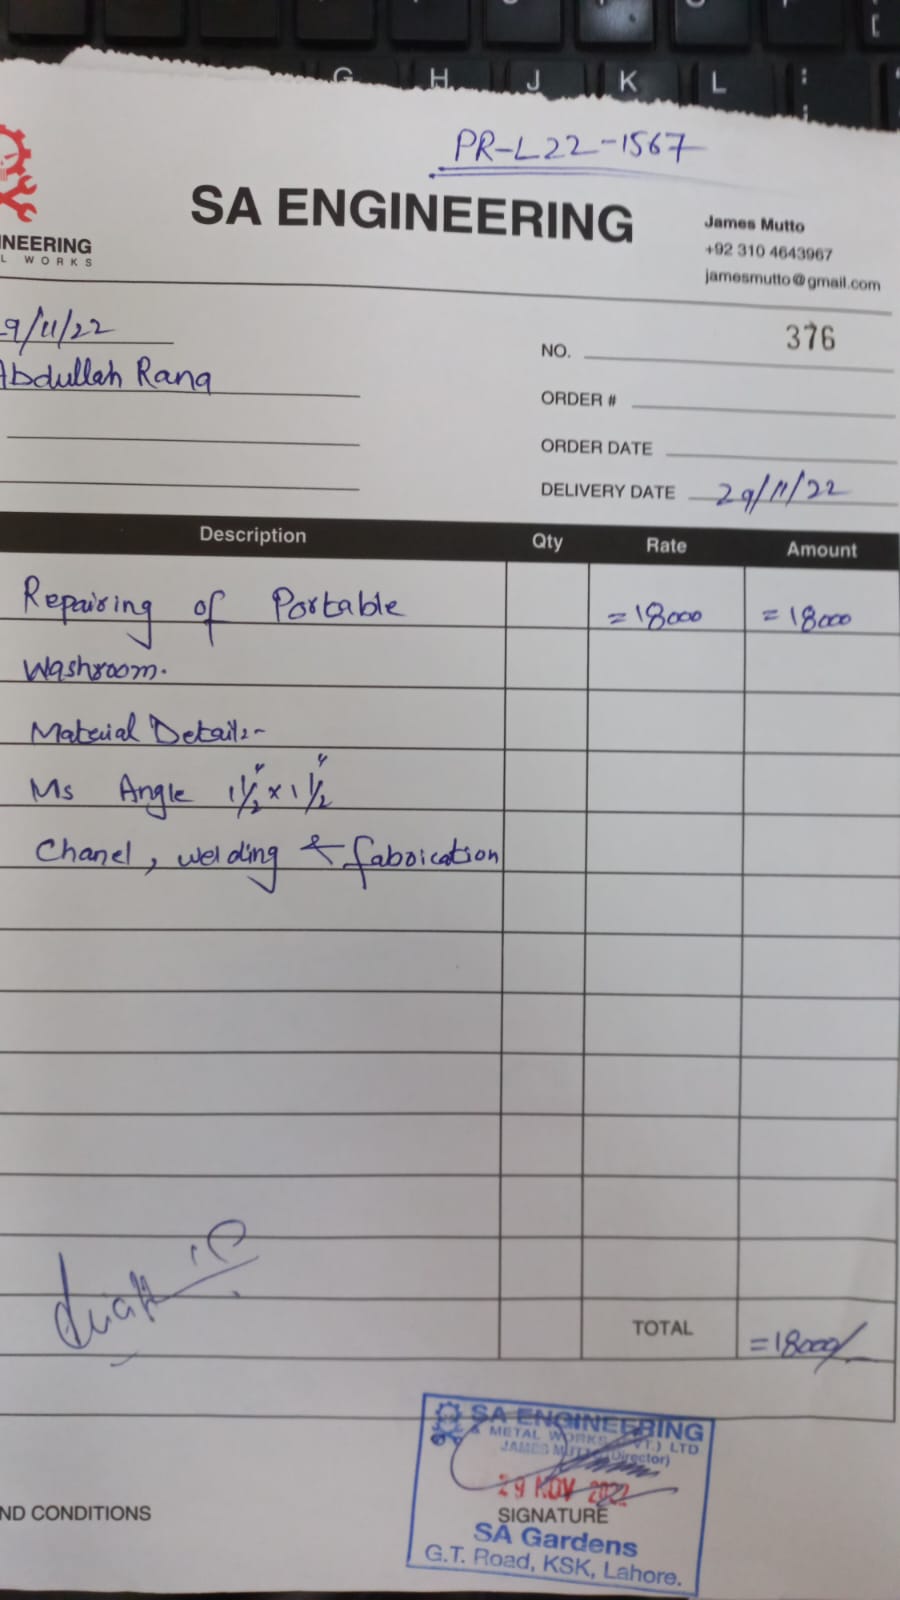 G H J K L
PR-L22-1567
SA ENGINEERING
James Mutto
+92 310 4643967
jamesmutto@gmail.com
NEERING
L WORKS
9/11/22
Abdullah Rana
NO. 376
ORDER #
ORDER DATE
DELIVERY DATE 29/11/22
Description Qty Rate Amount
Repairing of Portable =18000 =18000
Washroom.
Material Detail:-
Ms Angle 1½" x 1½"
Chanel, welding & fabrication
TOTAL =18000/-
SA ENGINEERING
& METAL WORKS (PVT.) LTD
JAMES MUTTO (Director)
29 NOV 2022
SIGNATURE
SA Gardens
G.T. Road, KSK, Lahore.
ND CONDITIONS